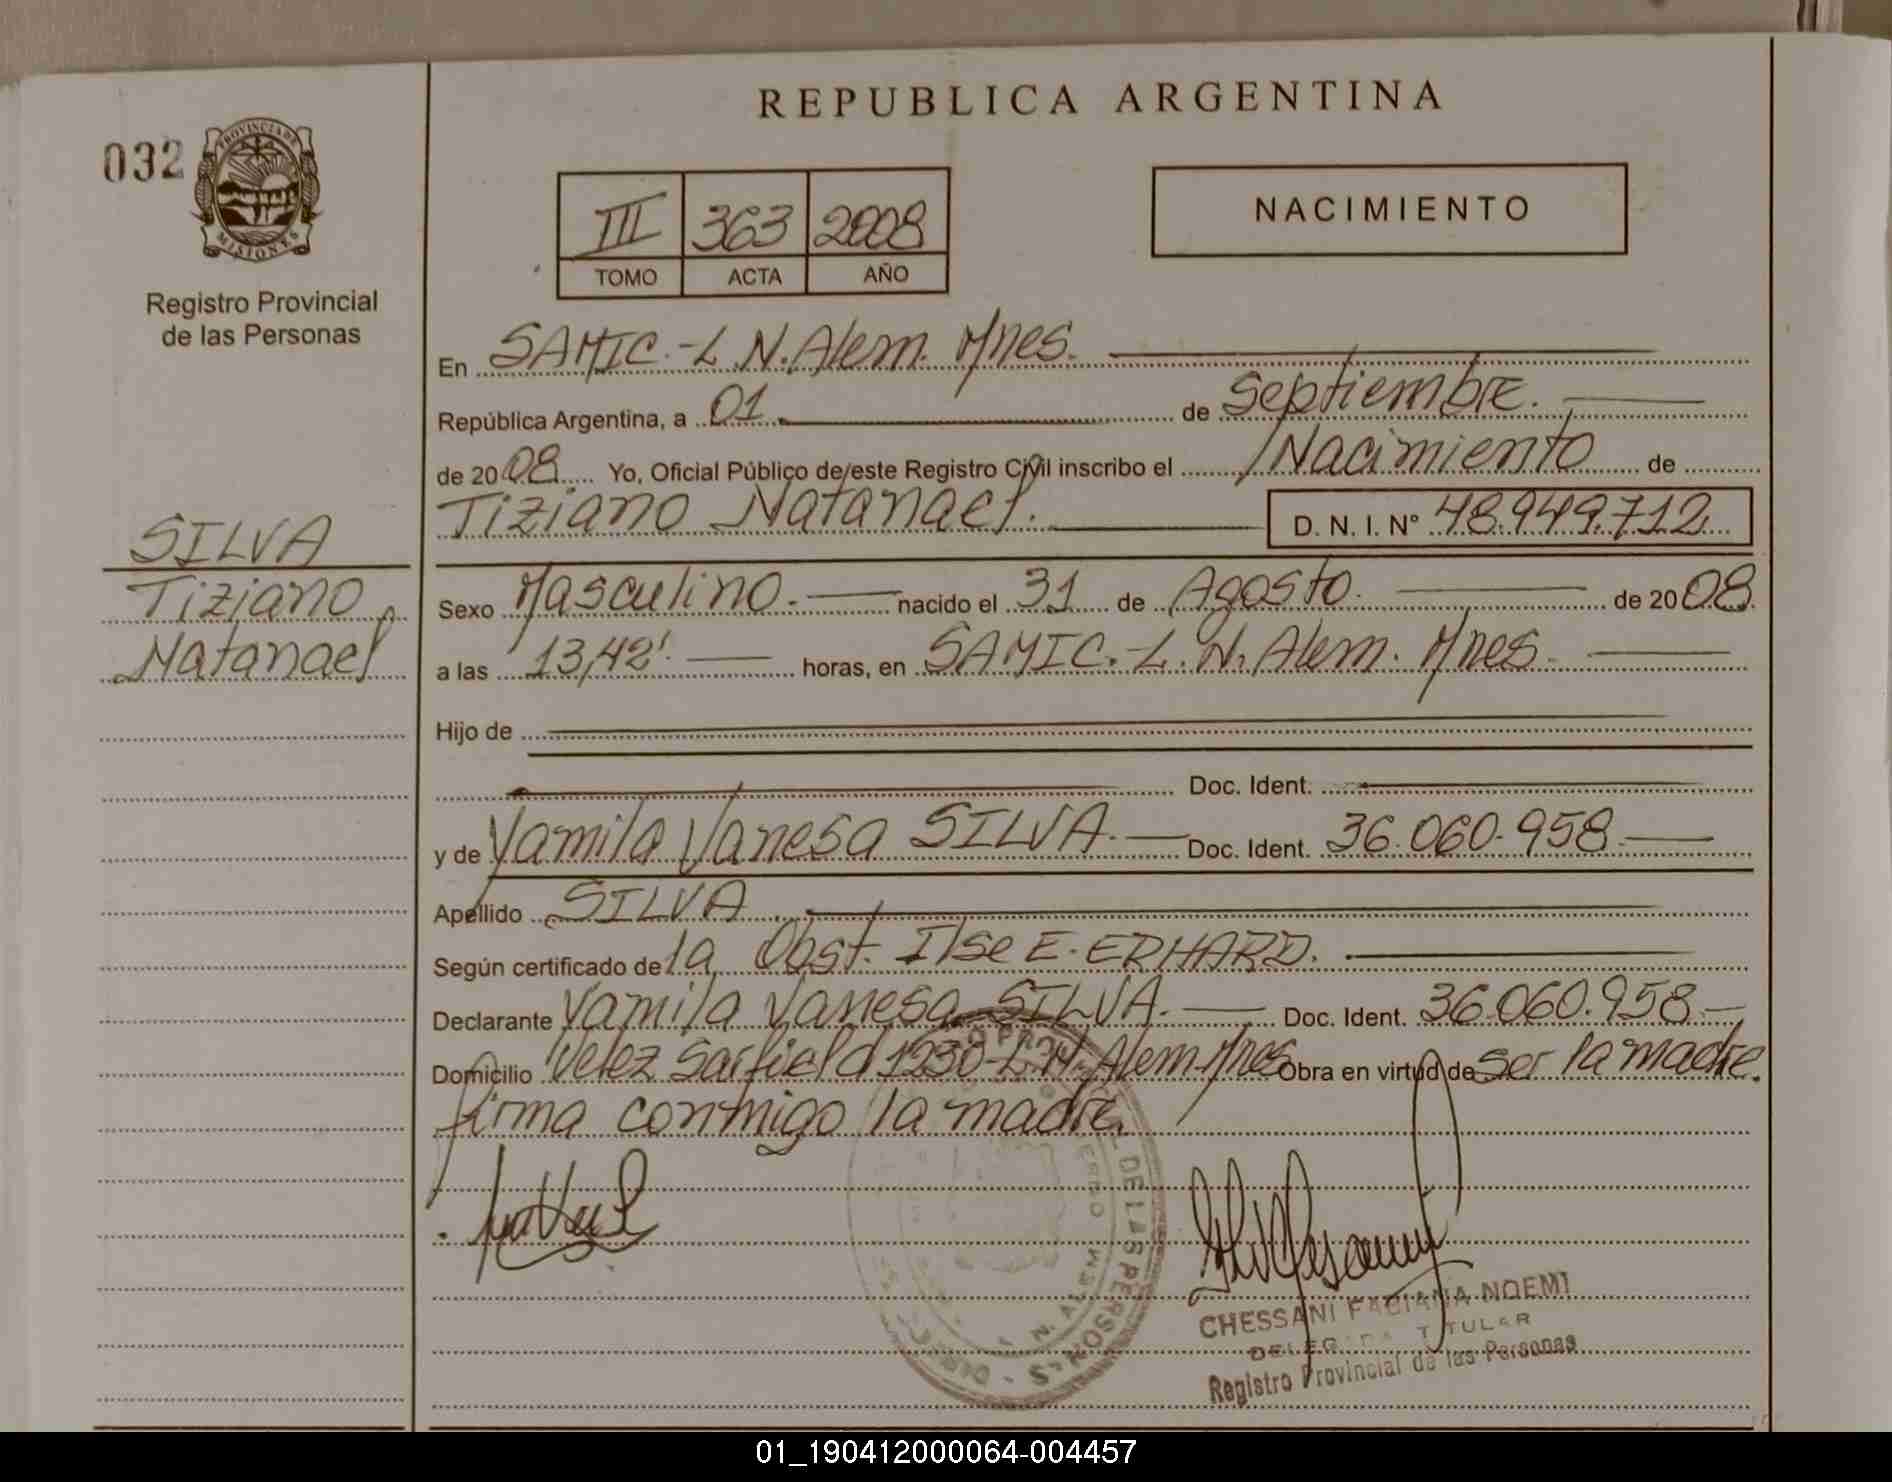 REPUBLICA ARGENTINA
032
PROVINCIA DE
MISIONES
Registro Provincial
de las Personas
III 363 2008
TOMO ACTA AÑO
NACIMIENTO
En SAMIC.-L.N.Alem. Mnes.
República Argentina, a 01 de Septiembre.
de 2008 Yo, Oficial Público de este Registro Civil inscribo el Nacimiento de
Tiziano Natanael. D. N. I. Nº 48.949.712
SILVA
Tiziano
Natanael
Sexo Masculino. nacido el 31 de Agosto. de 2008
a las 13,42'. horas, en SAMIC.-L.N.Alem. Mnes.
Hijo de
Doc. Ident.
y de Yamila Vanesa SILVA. Doc. Ident. 36.060.958
Apellido SILVA
Según certificado de la Obst. Ilse E. ERHARD.
Declarante Yamila Vanesa SILVA. Doc. Ident. 36.060.958
Domicilio Velez Sarfield 1230-L.N.Alem Mnes Obra en virtud de ser la madre.
firma conmigo la madre.
DE LAS PERSONAS
N. ALEM
CHESSANI FABIANA NOEMI
DELEGADA TITULAR
Registro Provincial de las Personas
01_190412000064-004457